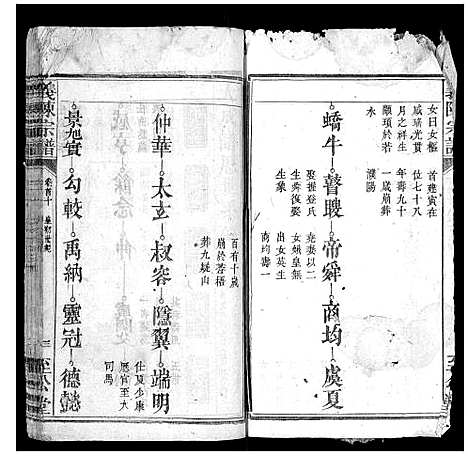 女曰女樞
感瑤光貫
月之祥生
顓頊於若
水
首建寅在
位七十八
年壽九十
一歲崩葬
濮陽
蟜牛 瞽瞍 帝舜 商均 虞夏
娶握登氏
生舜復娶
生象
堯妻以二
女娥皇無
出女英生
商均壽一
百有十歲
崩於蒼梧
葬九疑山
仲華 太玄 叔容 隱翼 端明
仕夏少康
歷官至大
司馬
景賓 勾較 禹納 靈冠 德懿
義陳宗譜
卷首十
三
至公堂